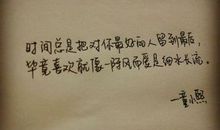 时间总是把对你最好的人留到最后，
毕竟喜欢就像一阵风而爱是细水长流。